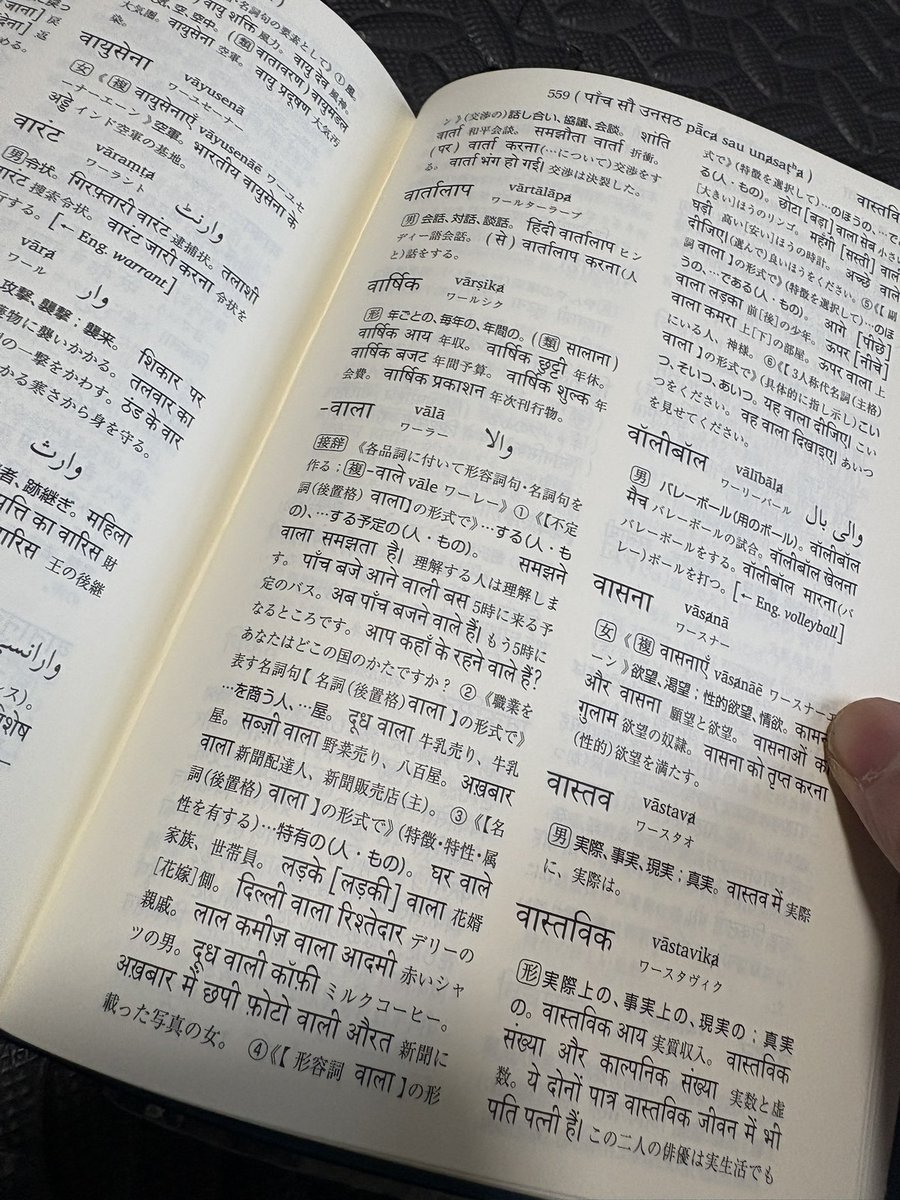 आना]
देना]
返
める。
名詞句の要素として)①風。
気、空、空中。 वायु शक्ति 風力。 वायु देव 風神。
大気圏。 (類 वातावरण) वायुमंडल
染。 वायुसेना 空軍。 वायु प्रदूषण 大気汚
वायुसेना vāyusenā
ワーユセーナー
女 《複 वायुसेनाएँ vāyusenāẽ ワーユセ
ーナーエーン》空軍。 भारतीय वायुसेना के
अड्डे インド空軍の基地。
वारंट vāraṃṭa وارنٹ
ワーラント
男 令状。 गिरफ़्तारी वारंट 逮捕状。 तलाशी
वारंट 捜索令状。 वारंट जारी करना 令状を
する。 [← Eng. warrant]
vāra وار
ワール
攻撃、襲撃;襲来。 शिकार पर
獲物に襲いかかる。 तलवार का
の一撃をかわす。 ठंड के वार
る寒さから身を守る。
وارث
者、跡継ぎ。 महिला
पत्ति का वारिस 財
वारिस 王の後継
وارانسی
ス)。
विशेष
559 ( पाँच सौ उनसठ pā̃ca sau unasaṭʰa )
वास्तवि
ン》(交渉の)話し合い、協議、会談。 शांति
वार्ता 和平会談。 समझौता वार्ता 折衝。
(पर) वार्ता करना (…について)交渉をす
る。 वार्ता भंग हो गई। 交渉は決裂した。
वार्तालाप vārtālāpa
ワールターラープ
男 会話、対話、談話。 हिंदी वार्तालाप ヒン
ディー語会話。 (से) वार्तालाप करना (人
と)話をする。
वार्षिक vārṣika
ワールシク
形 年ごとの、毎年の、年間の。(類 सालाना)
वार्षिक आय 年収。 वार्षिक छुट्टी 年休。
वार्षिक बजट 年間予算。 वार्षिक शुल्क 年
会費。 वार्षिक प्रकाशन 年次刊行物。
-वाला vālā والا
ワーラー
接辞 《各品詞に付いて形容詞句・名詞句を
作る;複-वाले vāle ワーレー》①《【不定
詞(後置格) वाला】の形式で》…する(人・も
の)、…する予定の(人・もの)。 समझने
वाला समझता है। 理解する人は理解しま
す。 पाँच बजे आने वाली बस 5時に来る予
定のバス。 अब पाँच बजने वाले हैं। もう5時に
なるところです。 आप कहाँ के रहने वाले हैं?
あなたはどこの国のかたですか? ②《職業を
表す名詞句【名詞(後置格) वाला】の形式で》
…を商う人、…屋。 दूध वाला 牛乳売り、牛乳
屋。 सब्ज़ी वाला 野菜売り、八百屋。 अख़बार
वाला 新聞配達人、新聞販売店(主)。 ③《【名
詞(後置格) वाला】の形式で》(特徴・特性・属
性を有する)…特有の(人・もの)。 घर वाले
家族、世帯員。 लड़के [लड़की] वाला 花婿
[花嫁]側。 दिल्ली वाला रिश्तेदार デリーの
親戚。 लाल कमीज़ वाला आदमी 赤いシャ
ツの男。 दूध वाली कॉफ़ी ミルクコーヒー。
अख़बार में छपी फ़ोटो वाली औरत 新聞に
載った写真の女。 ④《【形容詞 वाला】の形
式で》(特徴を選択して)…のほうの、…で
る(人・もの)。 छोटा [बड़ा] वाला सेब 小さい
[大きい]ほうのリンゴ。 महँगी [सस्ती] वाली
घड़ी 高い[安い]ほうの時計。 अच्छे वाले
दीजिए। (選んで)良いほうをください。 ⑤《【副
詞 वाला】の形式で》(特徴を選択して)…のほ
うの、…である(人・もの)。 आगे [पीछे]
वाला लड़का 前[後]の少年。 ऊपर [नीचे]
वाला कमरा 上[下]の部屋。 ऊपर वाला 上
にいる人、神様。 ⑥《【3人称代名詞(主格)
वाला】の形式で》(具体的に指し示し)こい
つ、そいつ、あいつ。 यह वाला दीजिए। こい
つをください。 वह वाला दिखाइए। あいつ
を見せてください。
वॉलीबॉल vālībāla والی بال
ワーリーバール
男 バレーボール(用のボール)。 वॉलीबॉल
मैच バレーボールの試合。 वॉलीबॉल खेलना
バレーボールをする。 वॉलीबॉल मारना (バ
レー)ボールを打つ。 [← Eng. volleyball]
वासना vāsanā
ワースナー
女 《複 वासनाएँ vāsanāẽ ワースナーエ
ーン》欲望、渇望;性的欲望、情欲。 कामन
और वासना 願望と欲望。 वासनाओं क
ग़ुलाम 欲望の奴隷。 वासना को तृप्त करना
(性的)欲望を満たす。
वास्तव vāstava
ワースタオ
男 実際、事実、現実;真実。 वास्तव में 実際
に、実際は。
वास्तविक vāstavika
ワースタヴィク
形 実際上の、事実上の、現実の;真実
の。 वास्तविक आय 実質収入。 वास्तविक
संख्या और काल्पनिक संख्या 実数と虚
数。 ये दोनों पात्र वास्तविक जीवन में भी
पति पत्नी हैं। この二人の俳優は実生活でも